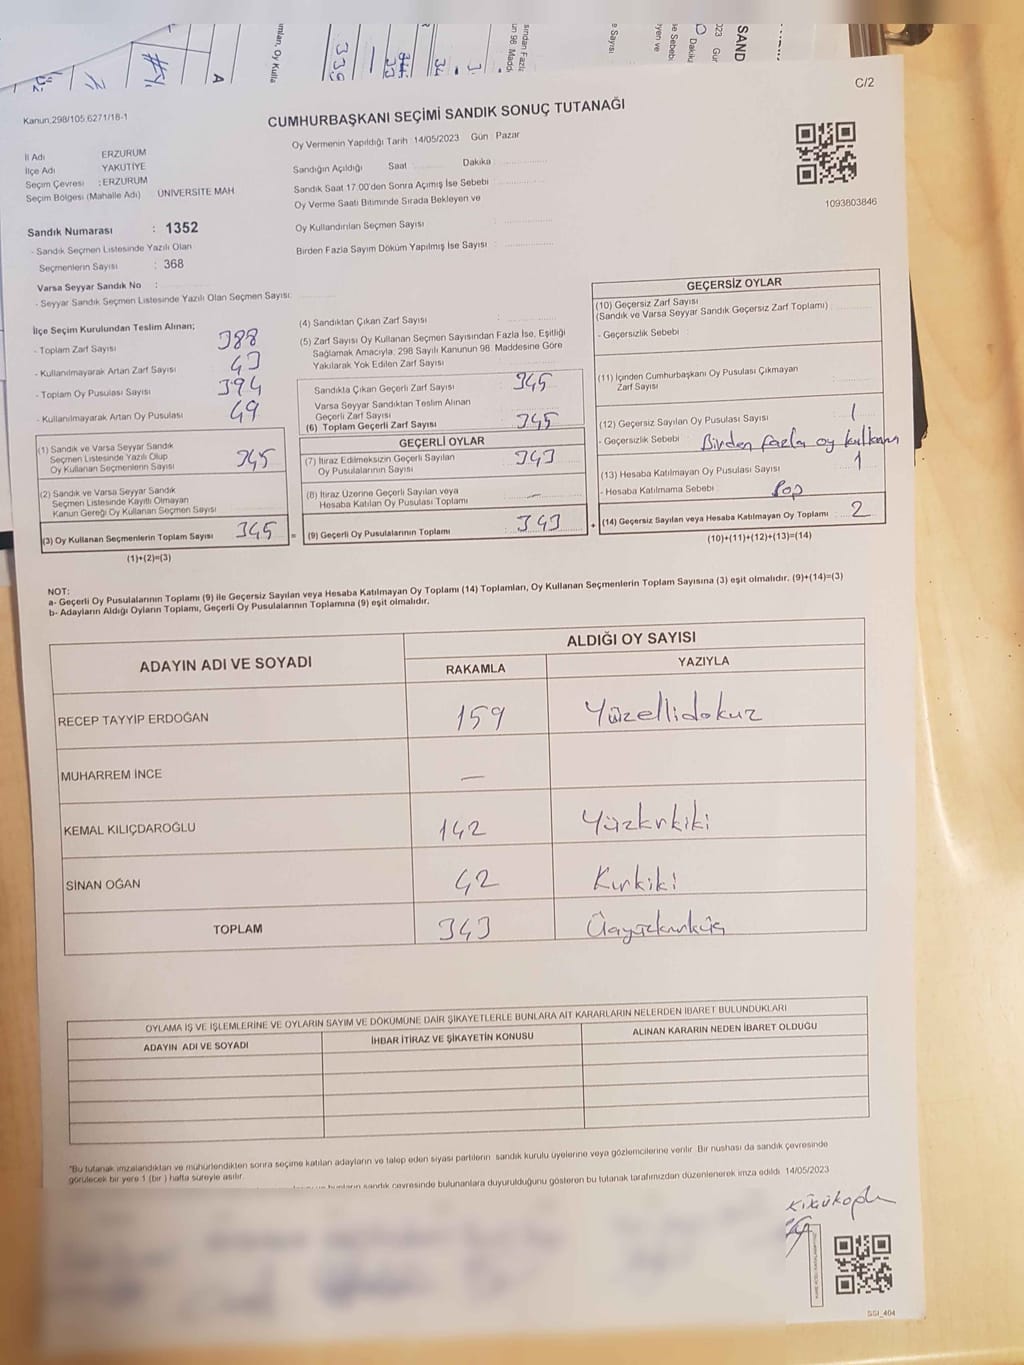 C/2
Kanun,298/105,6271/18-1
CUMHURBAŞKANI SEÇİMİ SANDIK SONUÇ TUTANAĞI
Oy Vermenin Yapıldığı Tarih :14/05/2023 Gün : Pazar
İl Adı ERZURUM
İlçe Adı YAKUTİYE
Seçim Çevresi : ERZURUM
Seçim Bölgesi (Mahalle Adı) ÜNİVERSİTE MAH.
Sandığın Açıldığı Saat Dakika
Sandık Saat 17:00'den Sonra Açımış İse Sebebi
Oy Verme Saati Bitiminde Sırada Bekleyen ve
Oy Kullandırılan Seçmen Sayısı
Birden Fazla Sayım Döküm Yapılmış İse Sayısı
1093803846
Sandık Numarası : 1352
- Sandık Seçmen Listesinde Yazılı Olan
Seçmenlerin Sayısı : 368
Varsa Seyyar Sandık No :
- Seyyar Sandık Seçmen Listesinde Yazılı Olan Seçmen Sayısı:
İlçe Seçim Kurulundan Teslim Alınan;
- Toplam Zarf Sayısı 388
- Kullanılmayarak Artan Zarf Sayısı 43
- Toplam Oy Pusulası Sayısı 394
- Kullanılmayarak Artan Oy Pusulası 49
(1) Sandık ve Varsa Seyyar Sandık
Seçmen Listesinde Yazılı Olup
Oy Kullanan Seçmenlerin Sayısı 345
(2) Sandık ve Varsa Seyyar Sandık
Seçmen Listesinde Kayıtlı Olmayan
Kanun Gereği Oy Kullanan Seçmen Sayısı
(3) Oy Kullanan Seçmenlerin Toplam Sayısı 345
(1)+(2)=(3)
(4) Sandıktan Çıkan Zarf Sayısı
(5) Zarf Sayısı Oy Kullanan Seçmen Sayısından Fazla İse, Eşitliği
Sağlamak Amacıyla, 298 Sayılı Kanunun 98. Maddesine Göre
Yakılarak Yok Edilen Zarf Sayısı
Sandıkta Çıkan Geçerli Zarf Sayısı 345
Varsa Seyyar Sandıktan Teslim Alınan
Geçerli Zarf Sayısı
(6) Toplam Geçerli Zarf Sayısı 345
GEÇERLİ OYLAR
(7) İtiraz Edilmeksizin Geçerli Sayılan
Oy Pusulalarının Sayısı 343
(8) İtiraz Üzerine Geçerli Sayılan veya
Hesaba Katılan Oy Pusulası Toplamı —
= (9) Geçerli Oy Pusulalarının Toplamı 343
GEÇERSİZ OYLAR
(10) Geçersiz Zarf Sayısı
(Sandık ve Varsa Seyyar Sandık Geçersiz Zarf Toplamı)
- Geçersizlik Sebebi
(11) İçinden Cumhurbaşkanı Oy Pusulası Çıkmayan
Zarf Sayısı
(12) Geçersiz Sayılan Oy Pusulası Sayısı 1
- Geçersizlik Sebebi Birden fazla oy kullanımı
(13) Hesaba Katılmayan Oy Pusulası Sayısı 1
- Hesaba Katılmama Sebebi
+ (14) Geçersiz Sayılan veya Hesaba Katılmayan Oy Toplamı 2
(10)+(11)+(12)+(13)=(14)
NOT:
a- Geçerli Oy Pusulalarının Toplamı (9) ile Geçersiz Sayılan veya Hesaba Katılmayan Oy Toplamı (14) Toplamları, Oy Kullanan Seçmenlerin Toplam Sayısına (3) eşit olmalıdır. (9)+(14)=(3)
b- Adayların Aldığı Oyların Toplamı, Geçerli Oy Pusulalarının Toplamına (9) eşit olmalıdır.
ADAYIN ADI VE SOYADI ALDIĞI OY SAYISI
RAKAMLA YAZIYLA
RECEP TAYYİP ERDOĞAN 159 Yüzellidokuz
MUHARREM İNCE —
KEMAL KILIÇDAROĞLU 142 Yüzkırkiki
SİNAN OĞAN 42 Kırkiki
TOPLAM 343 Üçyüzkırküç
OYLAMA İŞ VE İŞLEMLERİNE VE OYLARIN SAYIM VE DÖKÜMÜNE DAİR ŞİKAYETLERLE BUNLARA AİT KARARLARIN NELERDEN İBARET BULUNDUKLARI
ADAYIN ADI VE SOYADI İHBAR İTİRAZ VE ŞİKAYETİN KONUSU ALINAN KARARIN NEDEN İBARET OLDUĞU
"Bu tutanak imzalandıktan ve mühürlendikten sonra seçime katılan adayların ve talep eden siyasi partilerin sandık kurulu üyelerine veya gözlemcilerine verilir. Bir nüshası da sandık çevresinde
görülecek bir yere 1 (bir) hafta süreyle asılır.
sandık çevresinde bulunanlara duyurulduğunu gösteren bu tutanak tarafımızdan düzenlenerek imza edildi. 14/05/2023
SSİ_404